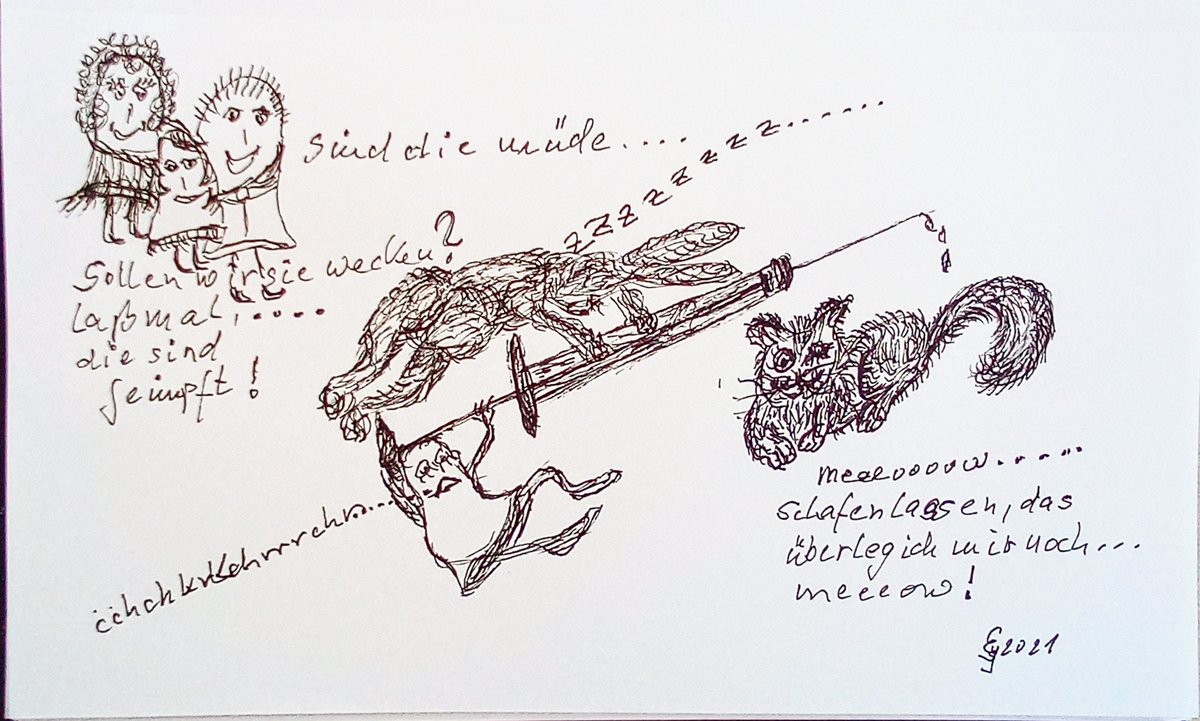 sind die müde....
zzzzzzzzz......
Sollen wir sie wecken?
laßmal,.....
die sind
geimpft!
meeevoooow......
schafenlassen, das
überleg ich mir noch...
meeeow!
2021